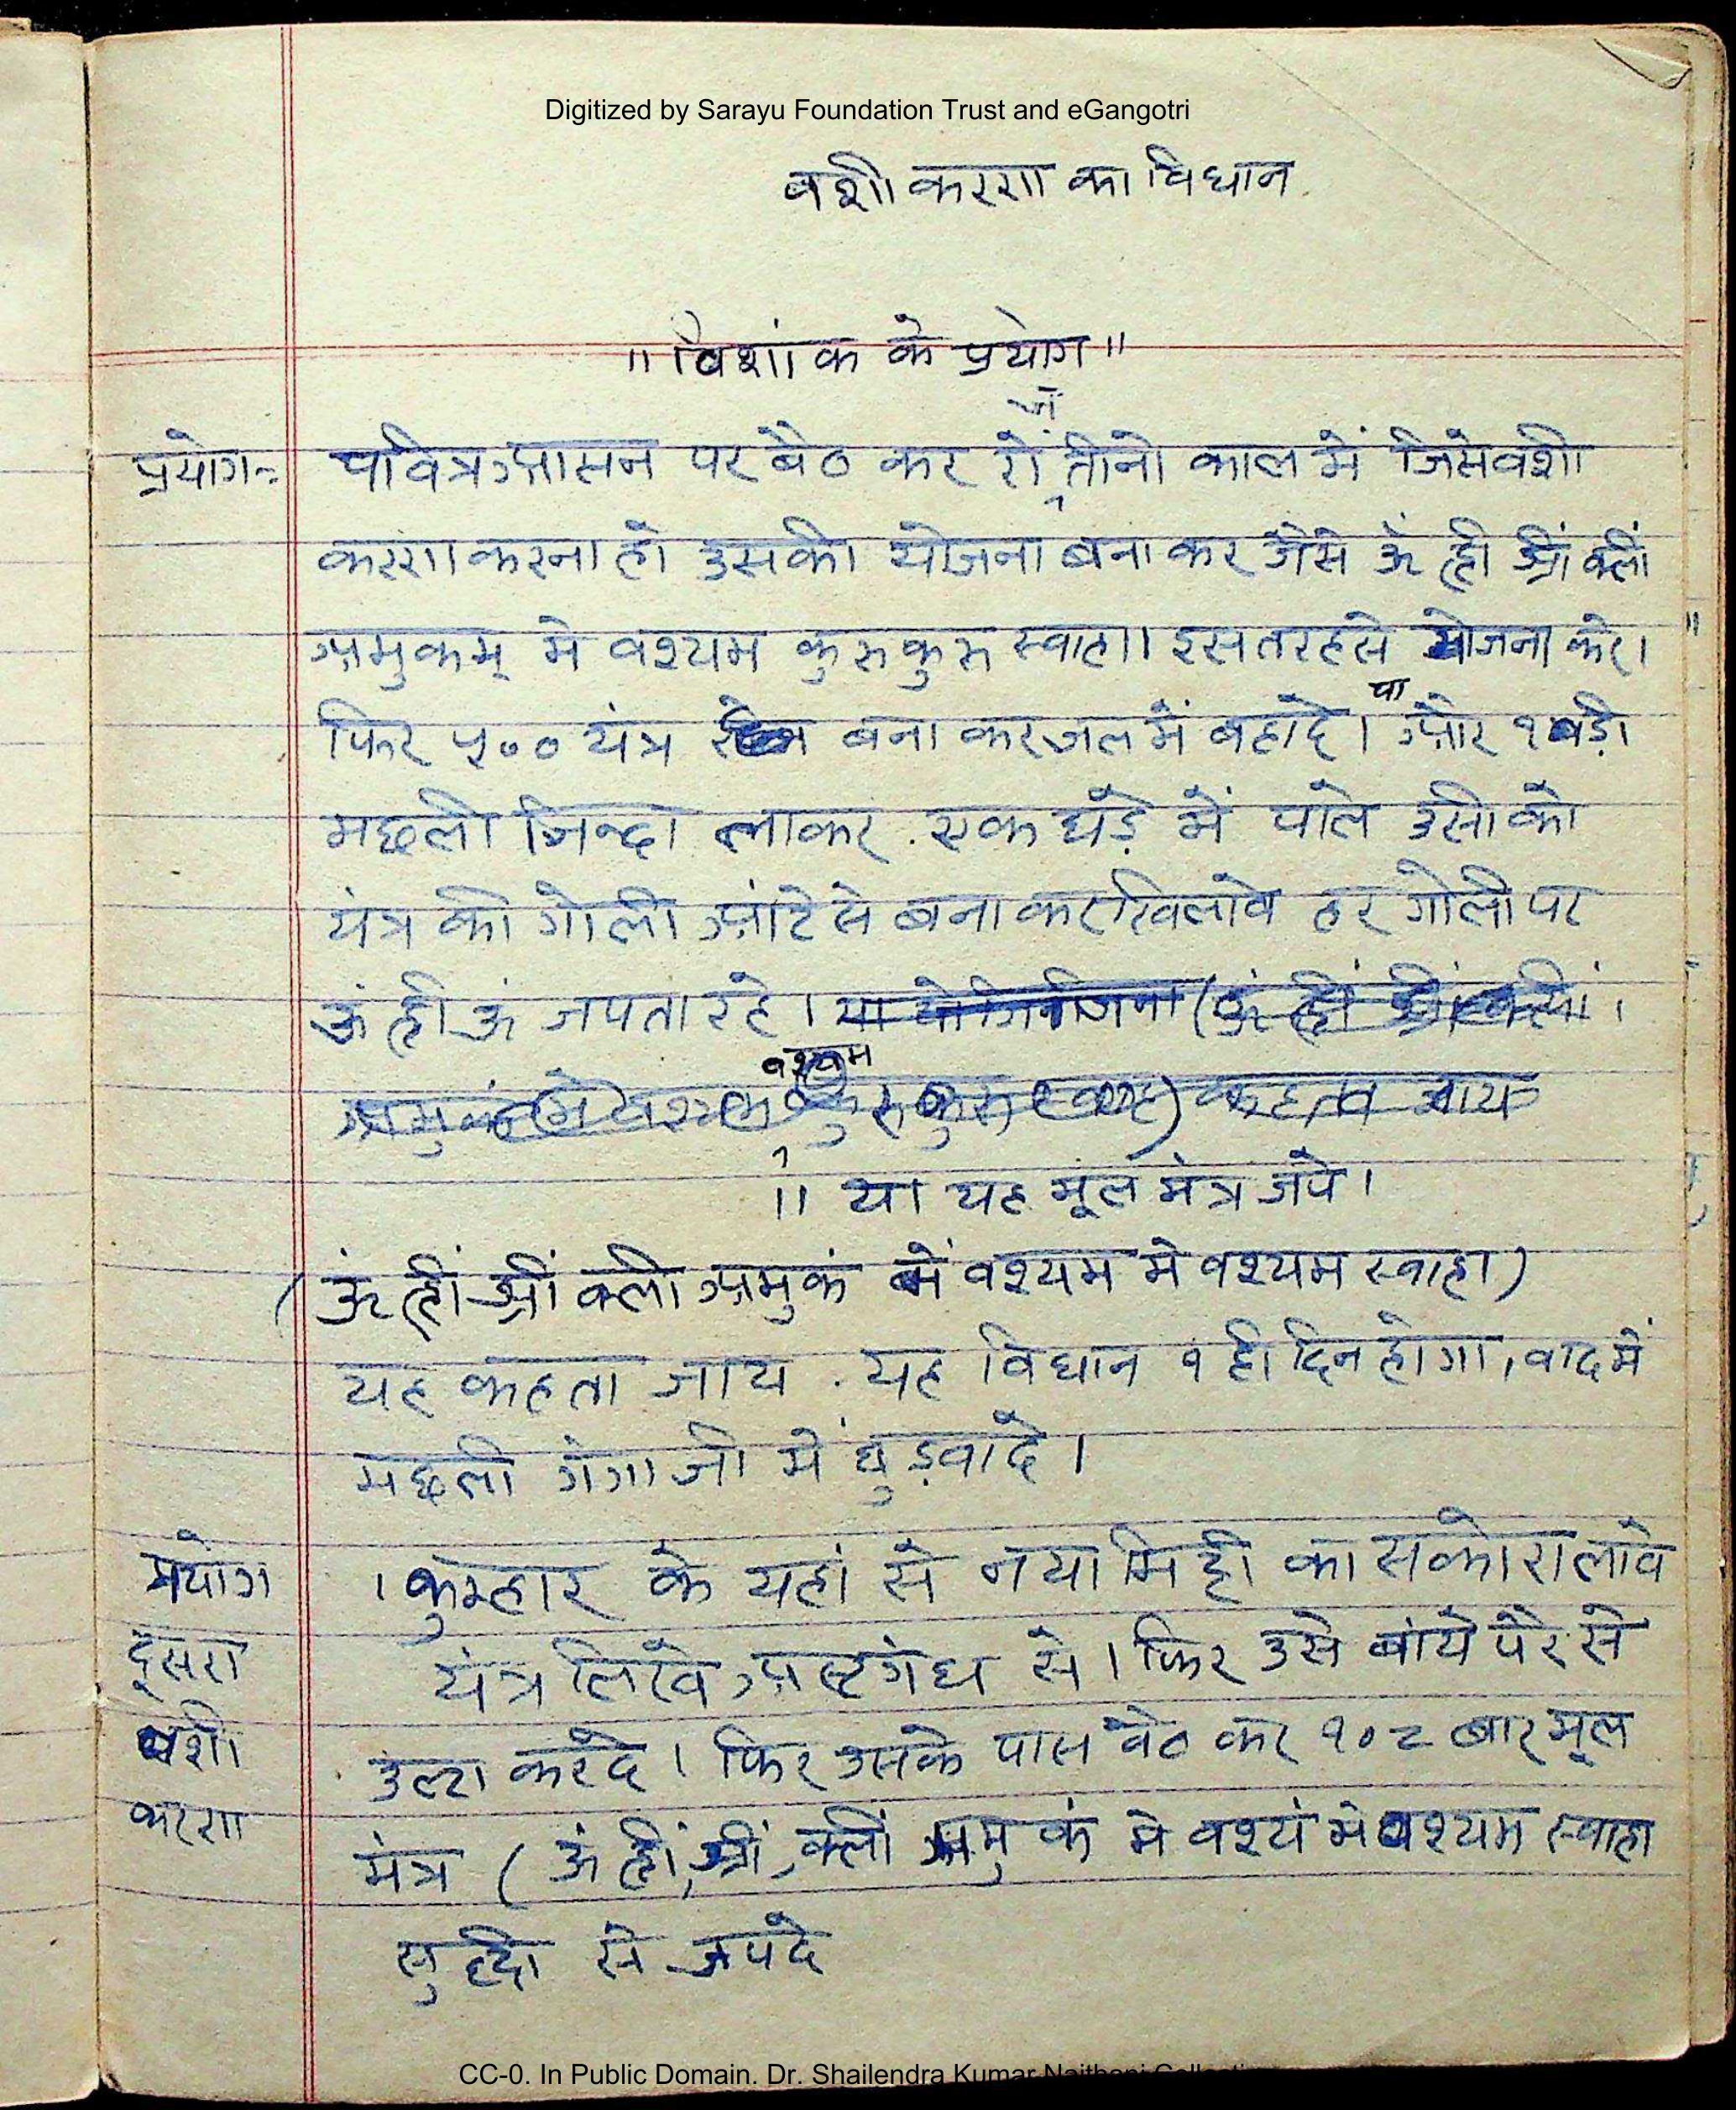 Digitized by Sarayu Foundation Trust and eGangotri
वशीकरण का विधान
"विशांक के प्रयोग"
प्रयोग:- पवित्र आसन पर बैठ कर तीनो काल में जिसे वशी
करण करना हो उसकी योजना बना कर जैसे ॐ ह्रीं श्रीं क्लीं
अमुकम् मे वश्यम कुरु कुरु स्वाहा। इस तरह से योजना करे।
फिर ५०० यंत्र बना कर जल में बहादे। या और १ बड़ी
मछली जिन्दा लाकर. एक घड़े में पाले उसी को
यंत्र की गोली आंटे से बना कर खिलावे हर गोली पर
ऊं ह्रीं ऊं जपता रहे।
वश्यम
।। या यह मूल मंत्र जपे।
(ॐ ह्रीं श्रीं क्लीं अमुकं मे वश्यम मे वश्यम स्वाहा)
यह कहता जाय. यह विधान १ ही दिन होगा, वाद में
मछली गंगा जी में छुड़वादे।
प्रयोग । कुम्हार के यहां से नया मिट्टी का सकोरा लावे
दूसरा यंत्र लिखे अष्टगंध से। फिर उसे बांये पैर से
वशी उल्टा करदे। फिर उसके पास बैठ कर १०८ बार मूल
करण मंत्र (ऊं ह्रीं, श्रीं, क्लीं अमुकं मे वश्यं मे वश्यम स्वाहा
से जपदे
CC-0. In Public Domain. Dr. Shailendra Kumar